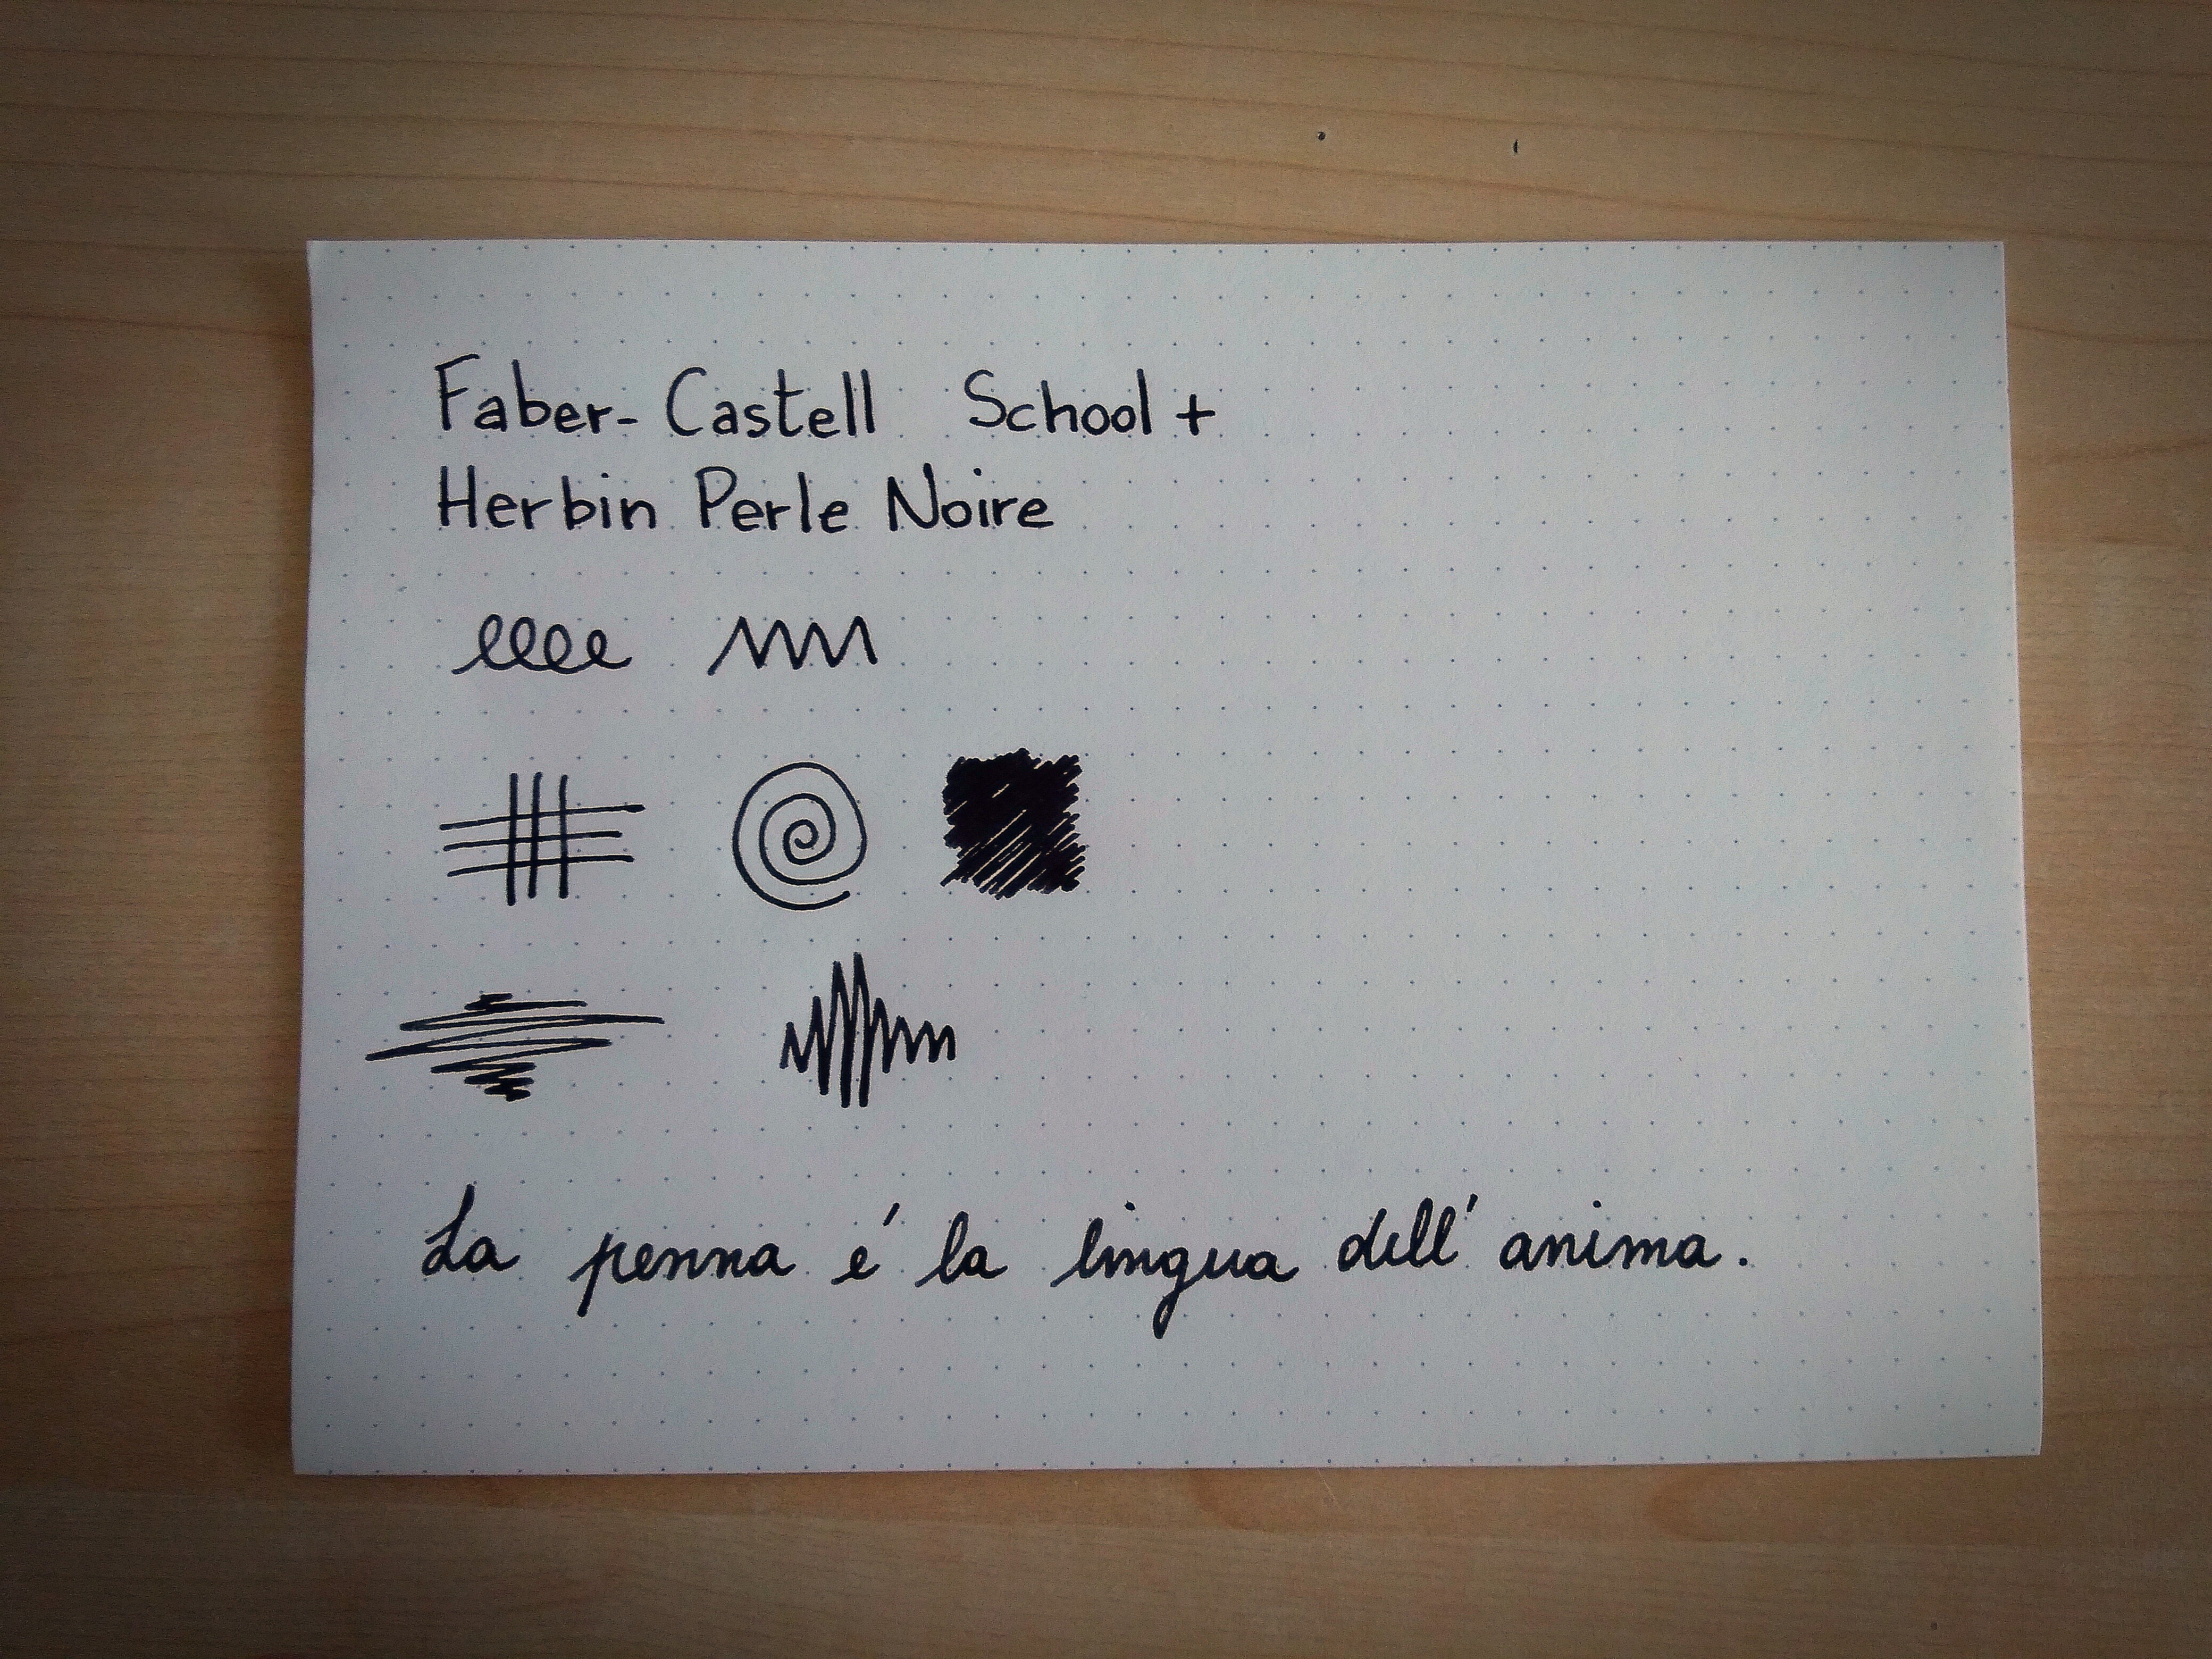 Faber-Castell School +
Herbin Perle Noire
La penna é la lingua dell' anima.